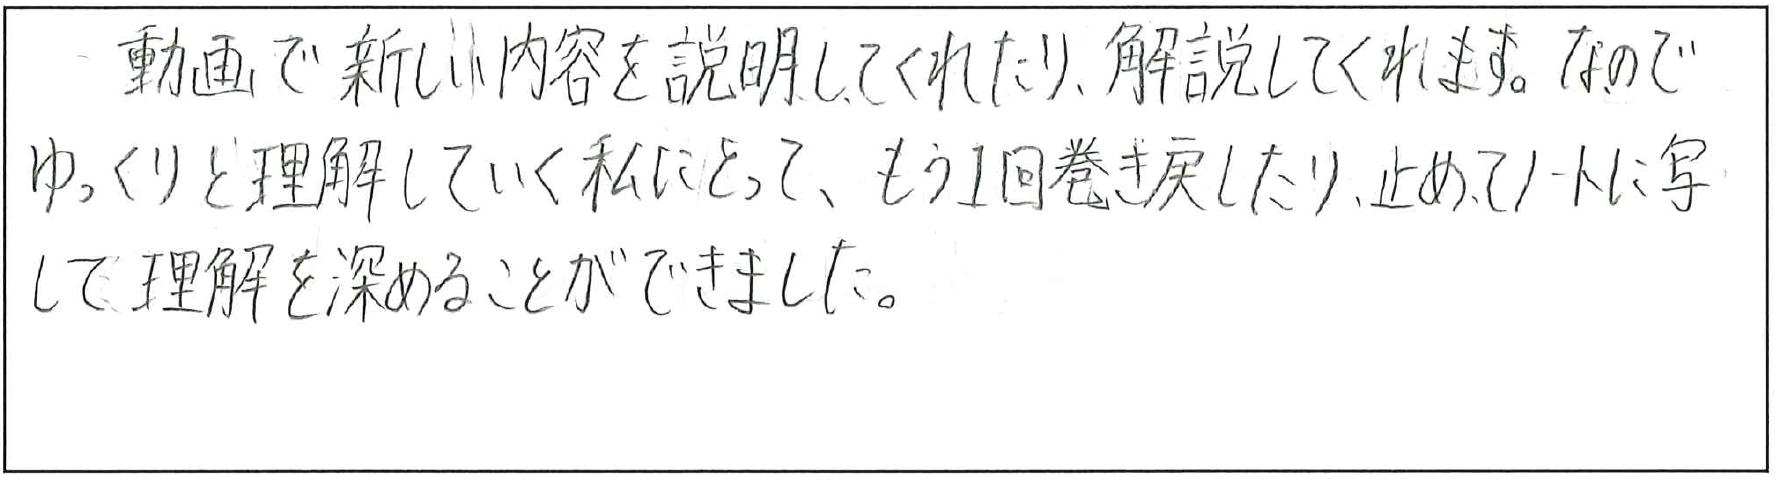 動画で新しい内容を説明してくれたり、解説してくれます。なので
ゆっくりと理解していく私にとって、もう1回巻き戻したり、止めてノートに写
して理解を深めることができました。